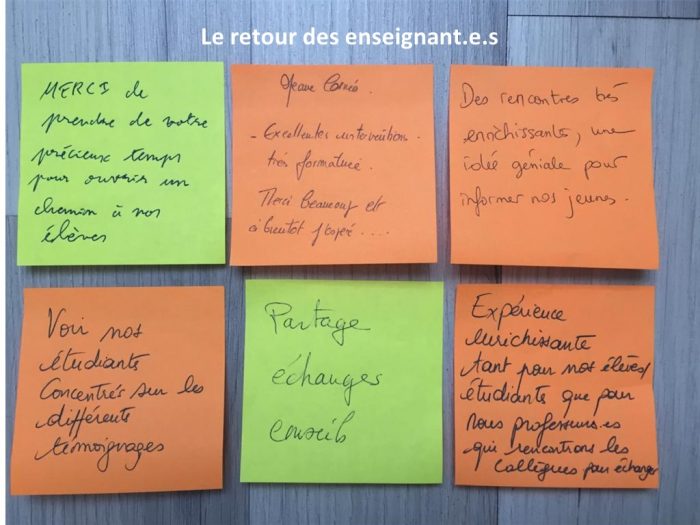 Le retour des enseignant.e.s
MERCI de
prendre de votre
précieux temps
pour ouvrir un
chemin à nos
élèves
- Excellentes intervention.
très formatrice.
Merci Beaucoup et
à bientôt j'espère....
Des rencontres très
enrichissants, une
idée géniale pour
informer nos jeunes.
Voir nos
étudiants
Concentrés sur les
différents
témoignages
Partage
échanges
conseils
Expérience
enrichissante
tant pour nos élèves/
étudiants que pour
nous professeurs.es
qui rencontrons les
collègues pour échanger